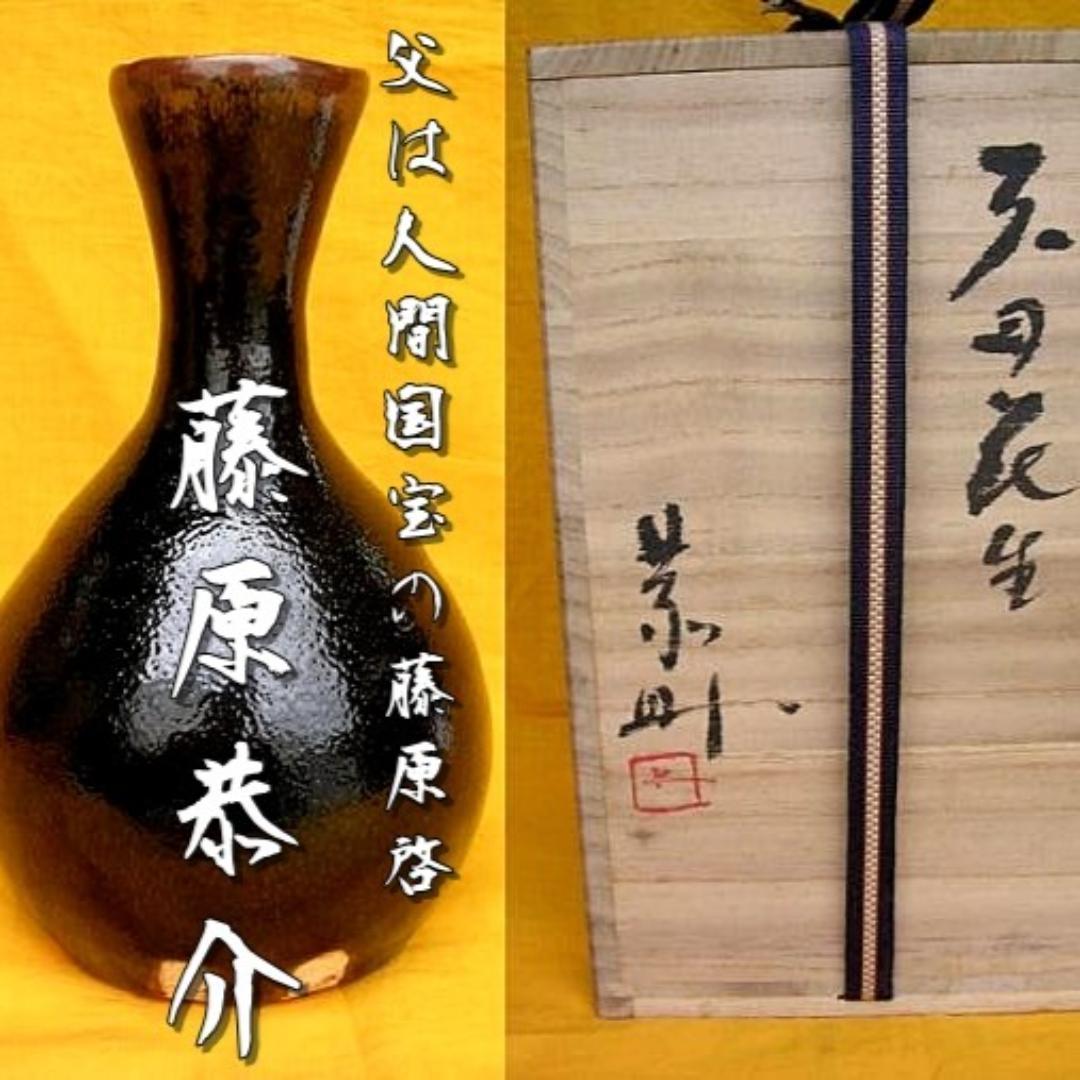 父は人間国宝の藤原啓
藤原恭介
天目花生
恭介